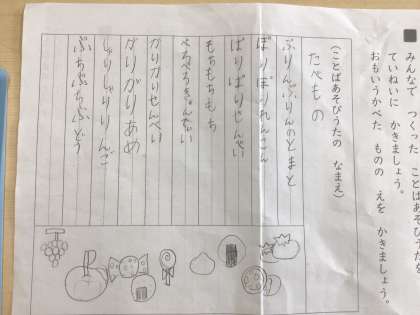 みんなで つくった ことばあそびうたを
ていねいに かきましょう。
おもいうかべた ものの えを かきましょう。
(ことばあそびうたの なまえ)
たべもの
ぷりんぷりんのとまと
ぽりぽりれんこん
ぱりぱりせんべい
もちもちもち
ぺろぺろきゃんでい
かりかりせんべい
がりがりあめ
しゃりしゃりりんご
ぷちぷちぶどう